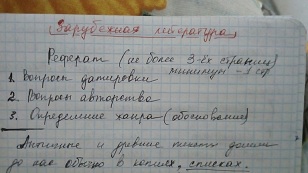 Зарубежная литература
Реферат (не более 3-ёх страниц)
минимум - 1 стр
1. Вопросы датировки
2. Вопросы авторства
3. Определение жанра (обоснование)
Античные и древние тексты дошли
до нас обычно в копиях, списках.